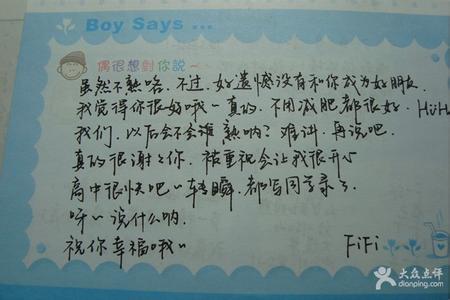 Boy Says ...
偶很想對你說~
虽然不熟咯.不过.好遗憾没有和你成为好朋友.
我觉得你很好哦~真的.不用减肥都很好.HüH
我们.以后会不会难熟呐?难讲.再说吧.
真的很谢谢你.被重视会让我很开心
高中很快吧~转瞬.都写同学录了.
呀~说什么呐.
祝你幸福哦~ FiFi
大众点评
dianping.com